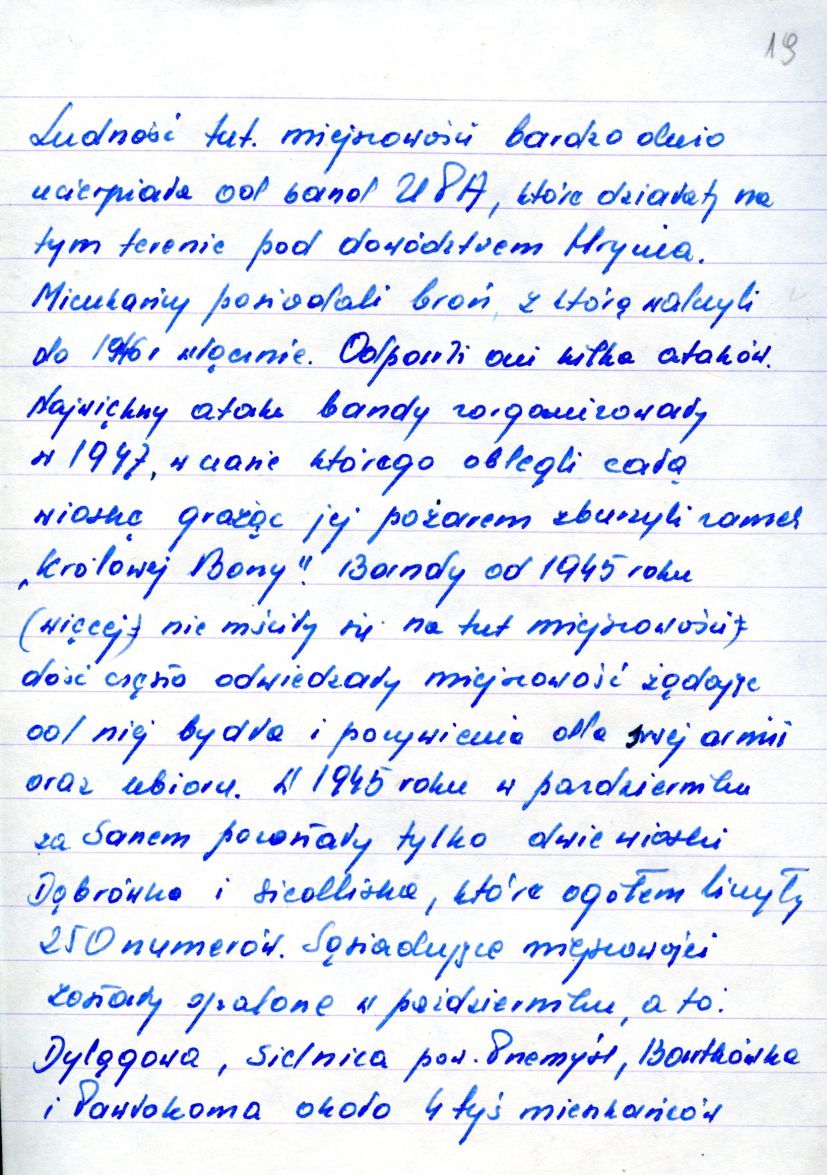 19
Ludność tut. miejscowości bardzo dużo
ucierpiała od band UPA, które działały na
tym terenie pod dowództwem Hrynia.
Mieszkańcy posiadali broń, z którą walczyli
do 1946 r włącznie. Odparli oni kilka ataków.
Największy atak bandy zorganizowały
w 1947, w czasie którego oblegli całą
wioskę grożąc jej pożarem zburzyli zamek
„Królowej Bony". Bandy od 1945 roku
(więcej) nie mściły się na tut miejscowości
dość często odwiedzały miejscowość żądając
od niej bydła i pożywienia dla swej armii
oraz ubioru. W 1945 roku w październiku
za Sanem pozostały tylko dwie wioski
Dąbrówka i Siedliska, które ogółem liczyły
250 numerów. Sąsiadujące miejscowości
zostały spalone w październiku, a to:
Dylągowa, Sielnica pow. Przemyśl, Bartkówka
i Pawłokoma około 4 tyś mieszkańców